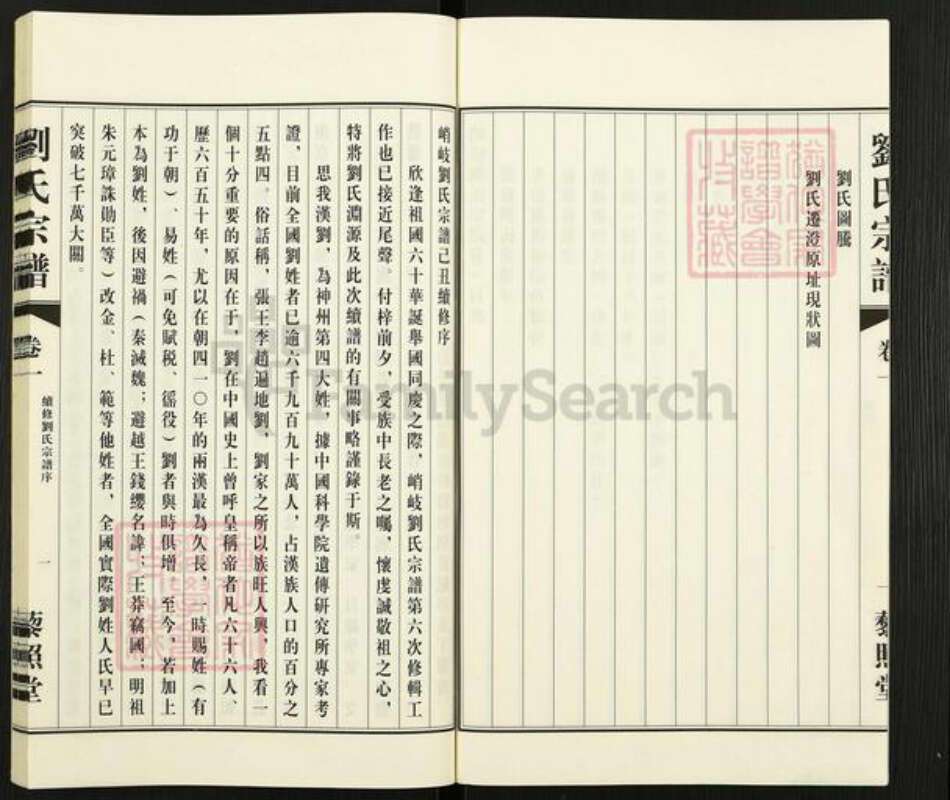 劉氏宗譜
卷一
藜照堂
劉氏圖騰
劉氏遷澄原址現狀圖
峭岐劉氏宗譜己丑續修序
欣逢祖國六十華誕舉國同慶之際，峭岐劉氏宗譜第六次修輯工
作也已接近尾聲。付梓前夕，受族中長老之囑，懷虔誠敬祖之心，
特將劉氏淵源及此次續譜的有關事略謹錄于斯。
思我漢劉，為神州第四大姓，據中國科學院遺傳研究所專家考
證，目前全國劉姓者已逾六千九百九十萬人，占漢族人口的百分之
五點四。俗話稱，張王李趙遍地劉，劉家之所以族旺人興，我看一
個十分重要的原因在于，劉在中國史上曾呼皇稱帝者凡六十六人、
歷六百五十年，尤以在朝四一〇年的兩漢最為久長，一時賜姓（有
功于朝）、易姓（可免賦税、徭役）劉者與時俱增，至今，若加上
本為劉姓，後因避禍（秦滅魏；避越王錢纓名諱；王莽竊國；明祖
朱元璋誅勛臣等）改金、杜、範等他姓者，全國實際劉姓人氏早已
突破七千萬大關。
劉氏宗譜
卷一
續修劉氏宗譜序
一
藜照堂
FamilySearch